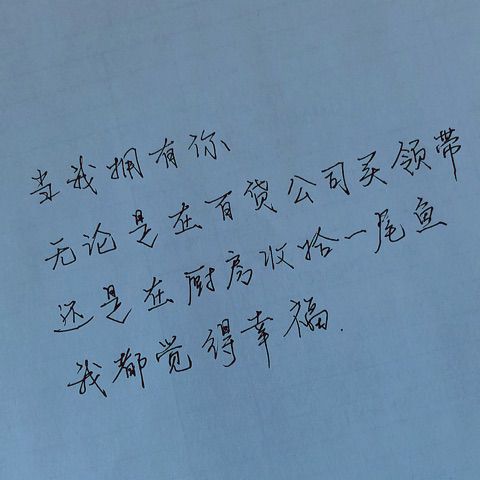 当我拥有你
无论是在百货公司买领带
还是在厨房收拾一尾鱼
我都觉得幸福.